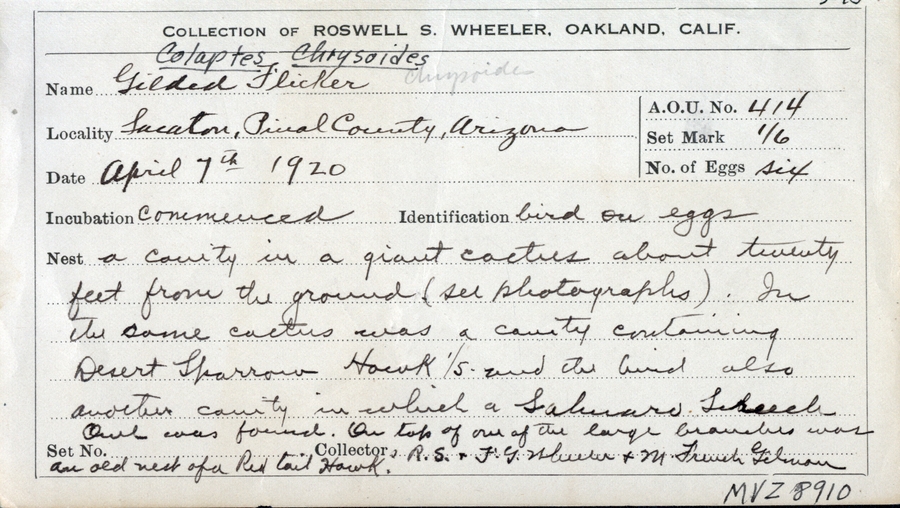 COLLECTION OF ROSWELL S. WHEELER, OAKLAND, CALIF.
Colaptes Chrysoides
Name Gilded Flicker chrysoides
A.O.U. No. 414
Locality Sacaton, Pinal County, Arizona
Set Mark 1/6
Date April 7th 1920
No. of Eggs six
Incubation commenced Identification bird on eggs
Nest a cavity in a giant cactus about twenty
feet from the ground (see photographs). In
the same cactus was a cavity containing
Desert Sparrow Hawk 1/5 and the bird also
another cavity in which a Sahuaro Screech
Owl was found. On top of one of the large branches was
Set No. Collector, R.S. & F.G. Wheeler & M. French Gilman
an old nest of a Red tail Hawk.
MVZ 8910